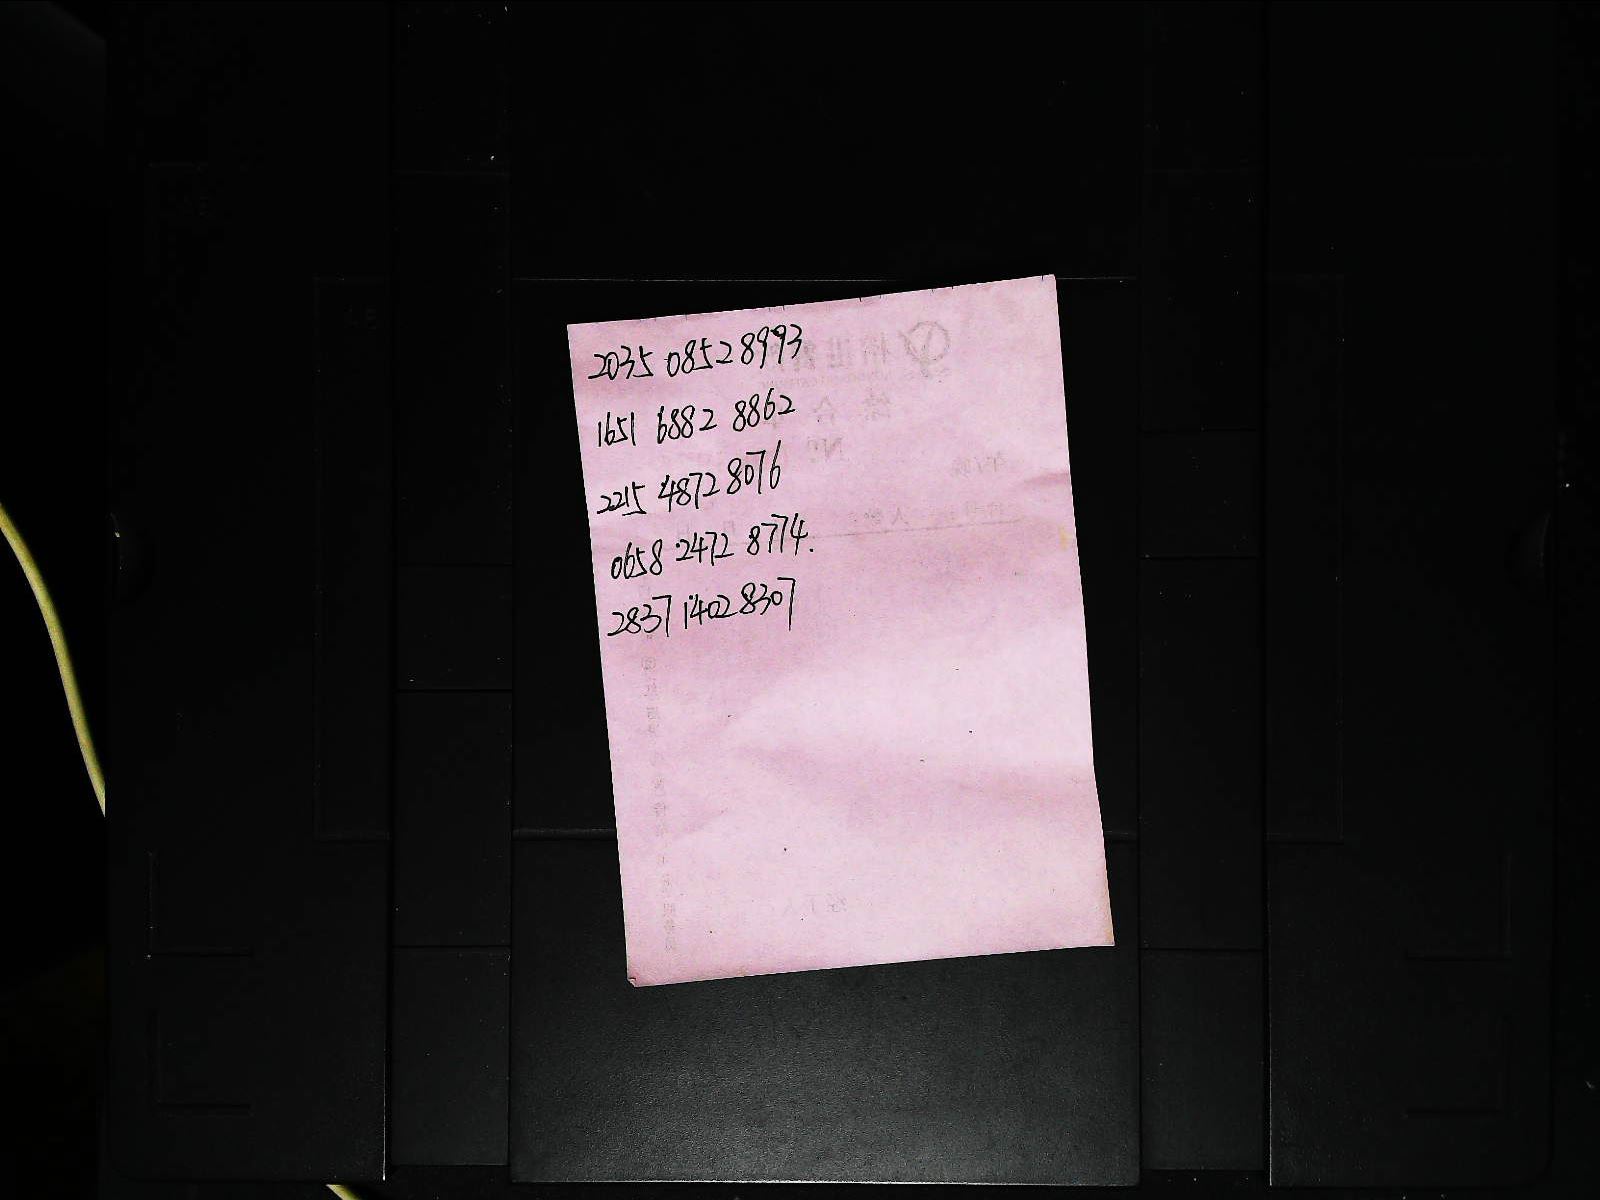 2035 0852 8993
1651 6882 8862
2215 4872 8076
0658 2472 8774.
2837 1402 8307